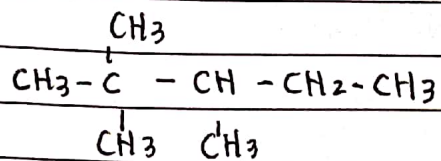 CH3
CH3 - C - CH - CH2 - CH3
CH3 CH3